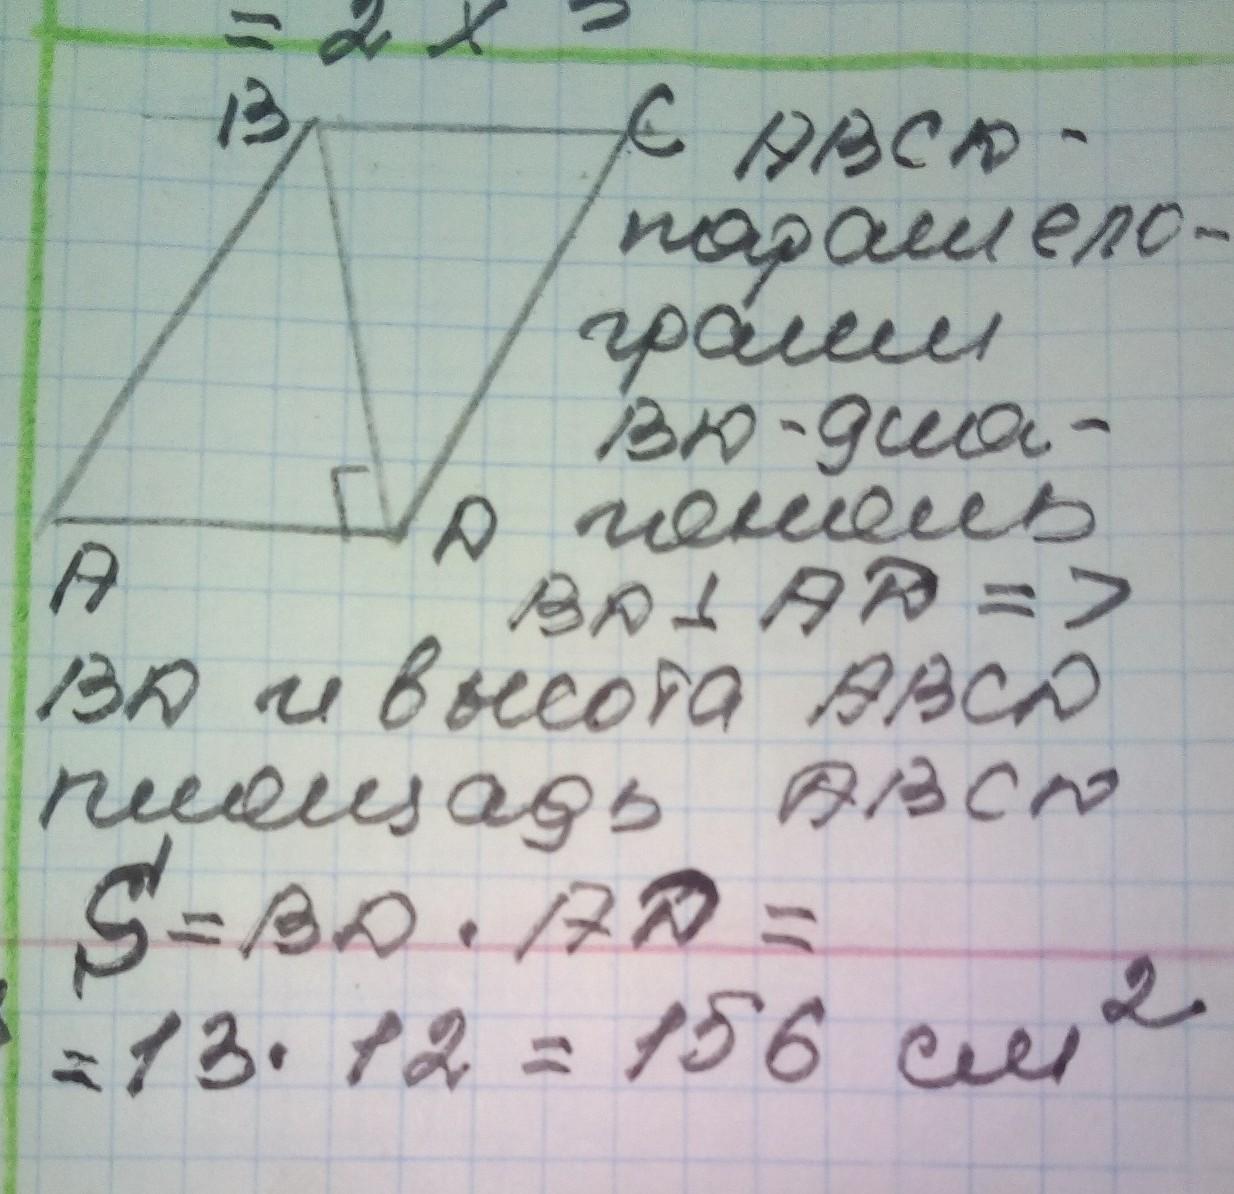 = 2 x
B
C
ABCD -
параллело-
грамм
BD - диа-
гональ
A
D
BD ⊥ AD =>
BD и высота ABCD
площадь ABCD
S = BD · AD =
= 13 · 12 = 156 см²